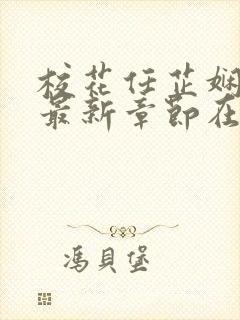 校花任芷娴
最新章节在
冯貝堡